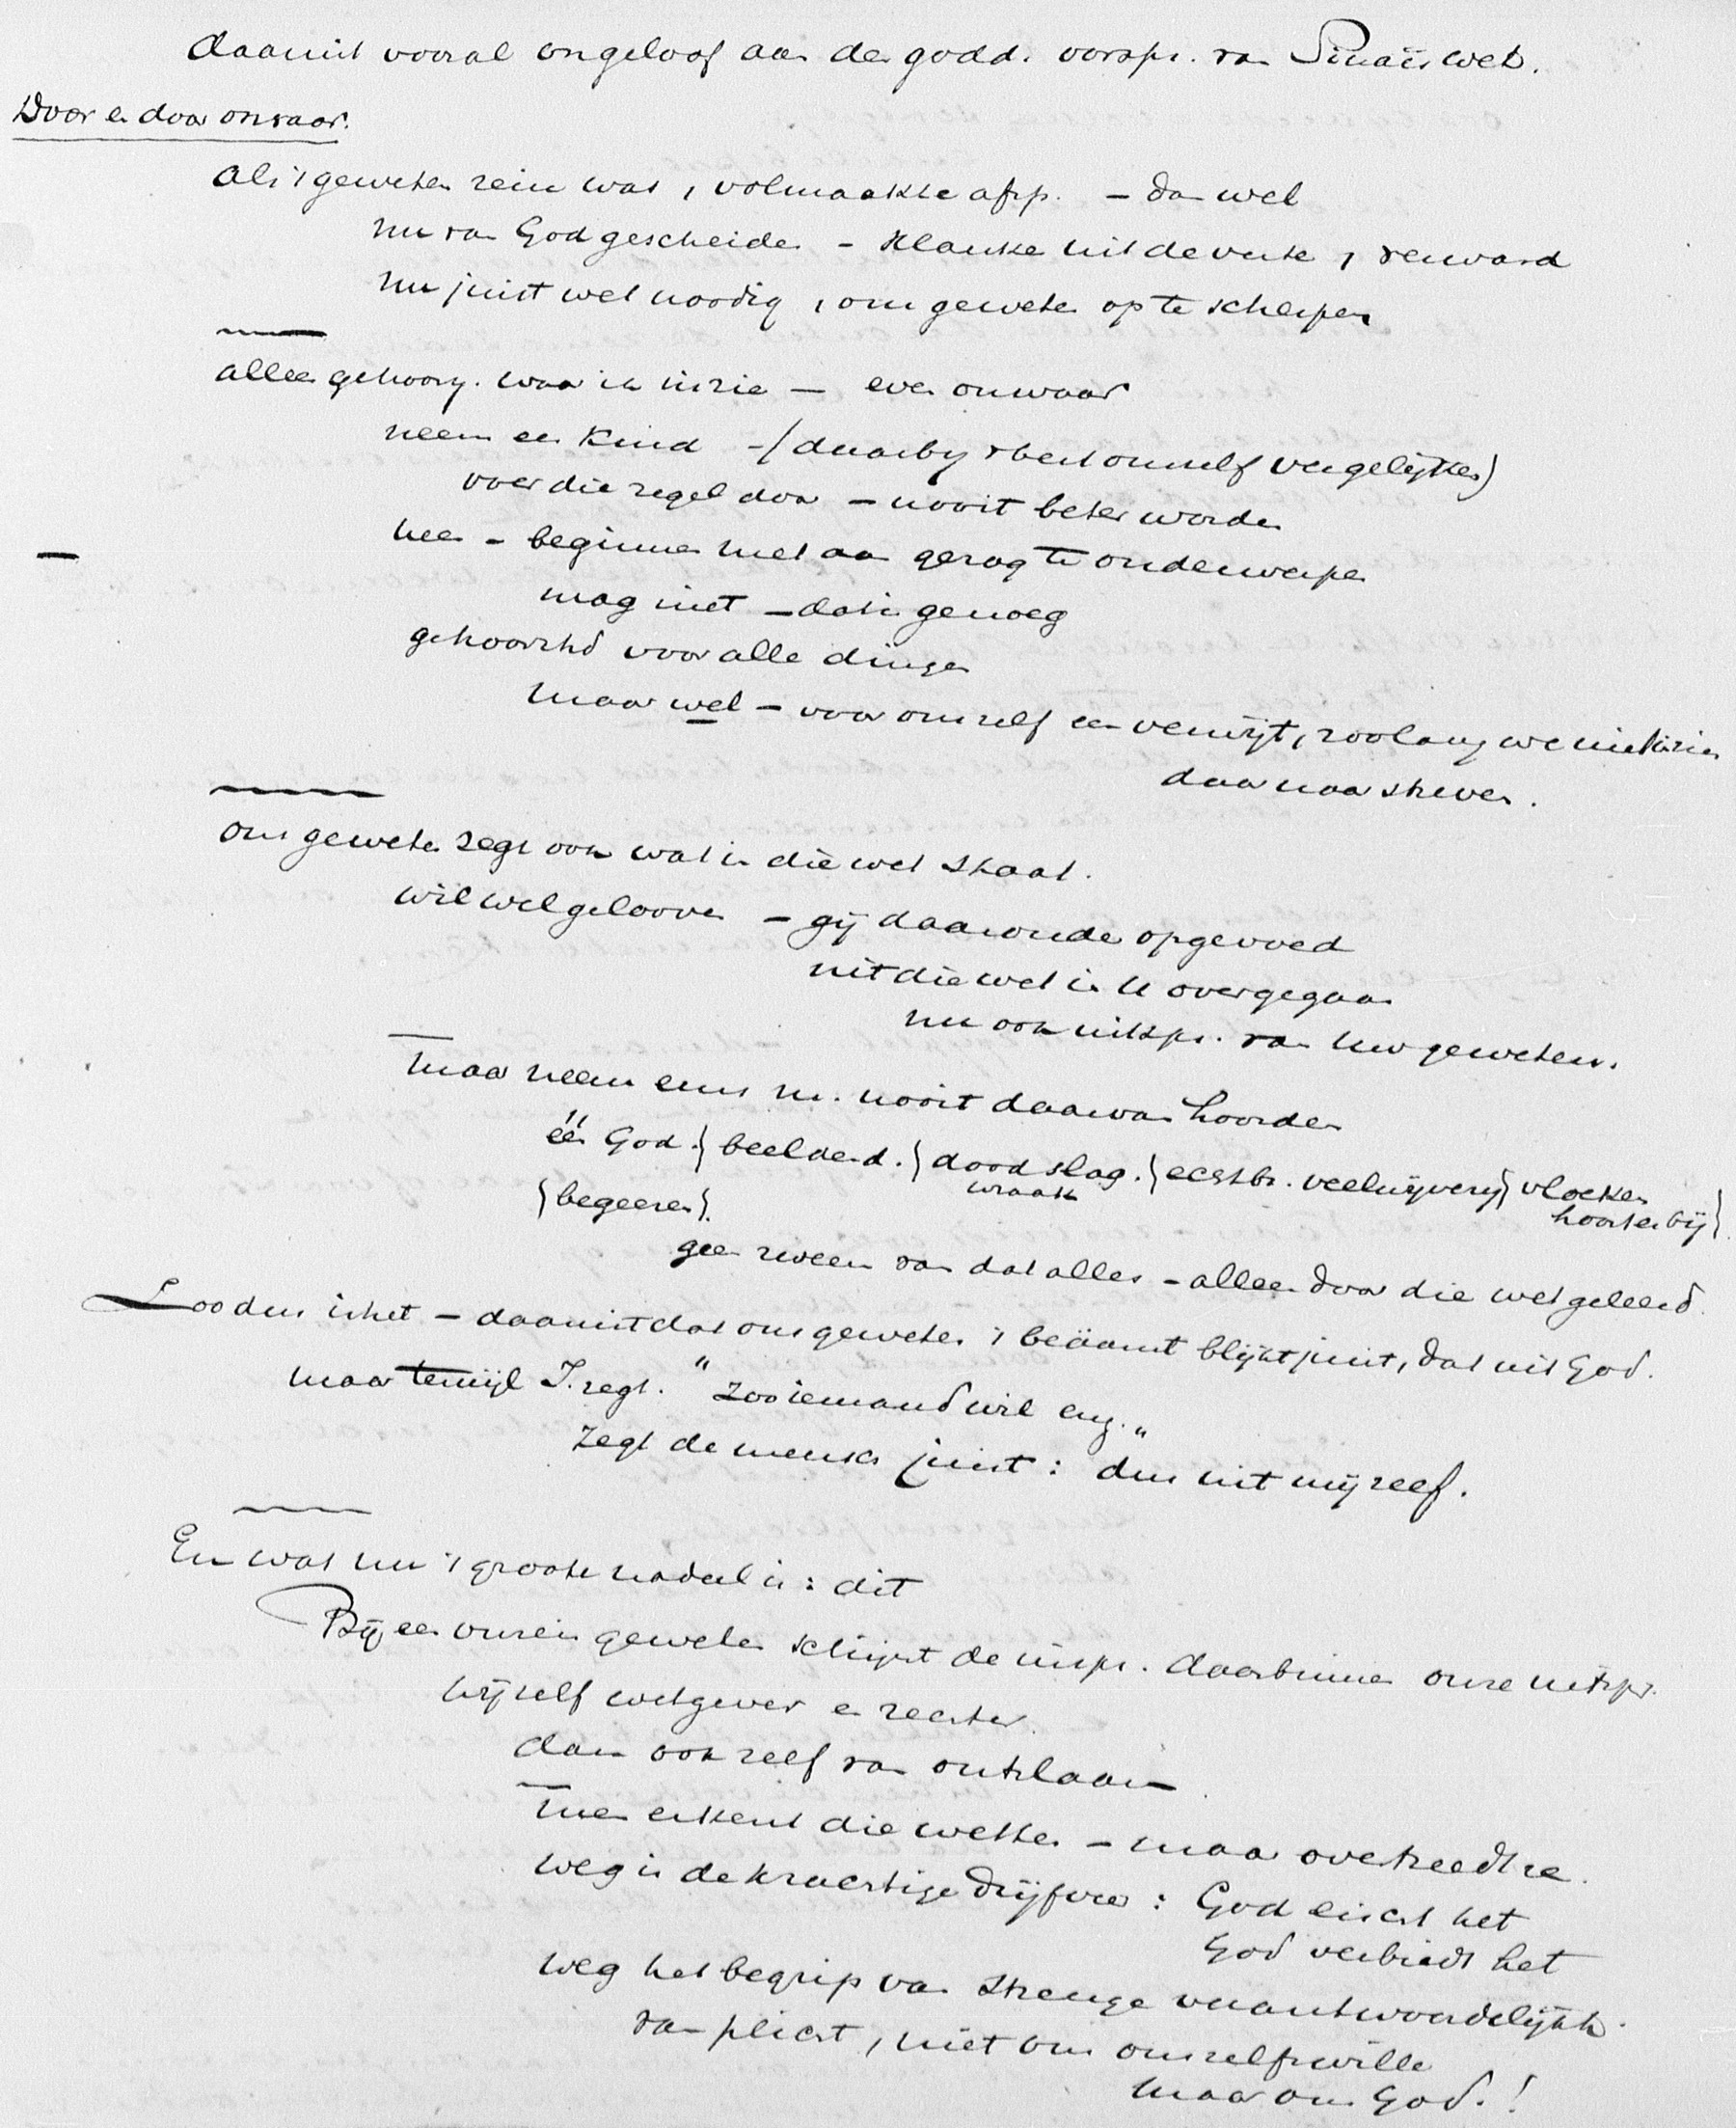 daaruit vooral ongeloof aan de godd. oorspr. van Sinaïs wet.
Door en door onwaar.
Als 't geweten rein was, volmaakte afsp. – dan wel
nu van God gescheiden – klanken uit de verte, verward
nu juist wet noodig, om geweten op te scherpen
alleen gehoorz. waar ik inzie – even onwaar
neem een kind – (daarby 't best onszelf vergelijken)
voer die regel door – nooit beter worden
neen – beginnen met aan gezag te onderwerpen
mag niet – dat is genoeg
gehoorzhd voor alle dingen
maar wel – voor onszelf een verwijt, zoolang we niet inzien
daarnaar streven.
ons geweten zegt ook wat in die wet staat.
wil wel gelooven – gij daaronder opgevoed
uit die wet in U overgegaan
nu ook uitspr. van Uw geweten.
maar neem eens m. nooit daarvan hoorden
één God. } beeldend. } doodslag. } echtbr. veelwijverij } vloeken
wraak
hoorden bij }
} begeeren }.
geen zweem van dat alles – alleen door die wet geleerd.
Zoo dus is het – daaruit dat ons geweten 't beäamt blijkt juist, dat uit God.
maar terwijl J. zegt. "zoo iemand wil enz."
zegt de mensch juist: dus uit mijzelf.
En wat nu 't groote nadeel is: dit
Bij een onrein geweten schijnt de inspr. daarbinnen onze uitspr.
wijzelf wetgever en rechter.
dan ook zelf van ontslaan.
men erkent die wetten – maar overtreedt ze.
weg is de krachtige drijfveer: God eischt het
God verbiedt het
weg het begrip van strenge verantwoordelijkh.
van plicht, niet om onszelfswille
maar om God.!